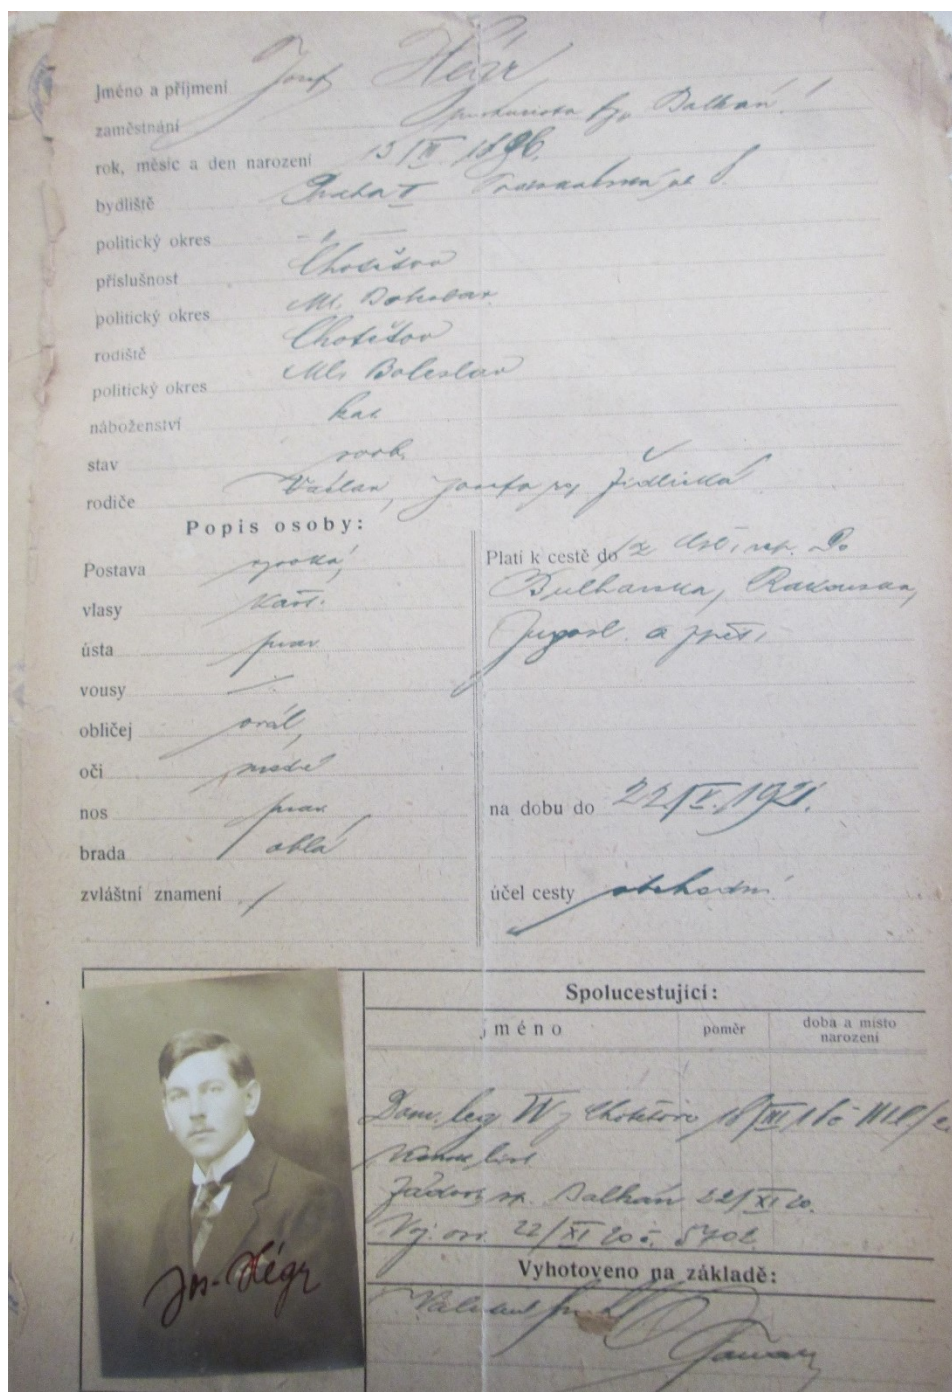 Jméno a příjmení Josef Hégr
zaměstnání fy. Balkán
rok, měsíc a den narození 15/III 1896.
bydliště Praha II
politický okres - " -
příslušnost Chotětov
politický okres Ml. Boleslav
rodiště Chotětov
politický okres Ml. Boleslav
náboženství kat
stav svob.
rodiče Václav, Josefa roz Židlická
Popis osoby:
Postava vysoká,
vlasy kašt.
ústa prav
vousy /.
obličej ovál,
oči modré
nos prav
brada oblá
zvláštní znamení /
Platí k cestě do z čsl. rep. Do
Bulharska, Rakouska,
Jugosl. a zpět.
na dobu do 22/V. 1921.
účel cesty obchodní
Spolucestující:
jméno poměr doba a místo
narození
Dom. leg z Chotětova 18/III
list
Žádost sp. Balkán 22/XI 20.
Voj. osv. 22/XI 20 č. 5702
Vyhotoveno na základě:
Jos. Hégr